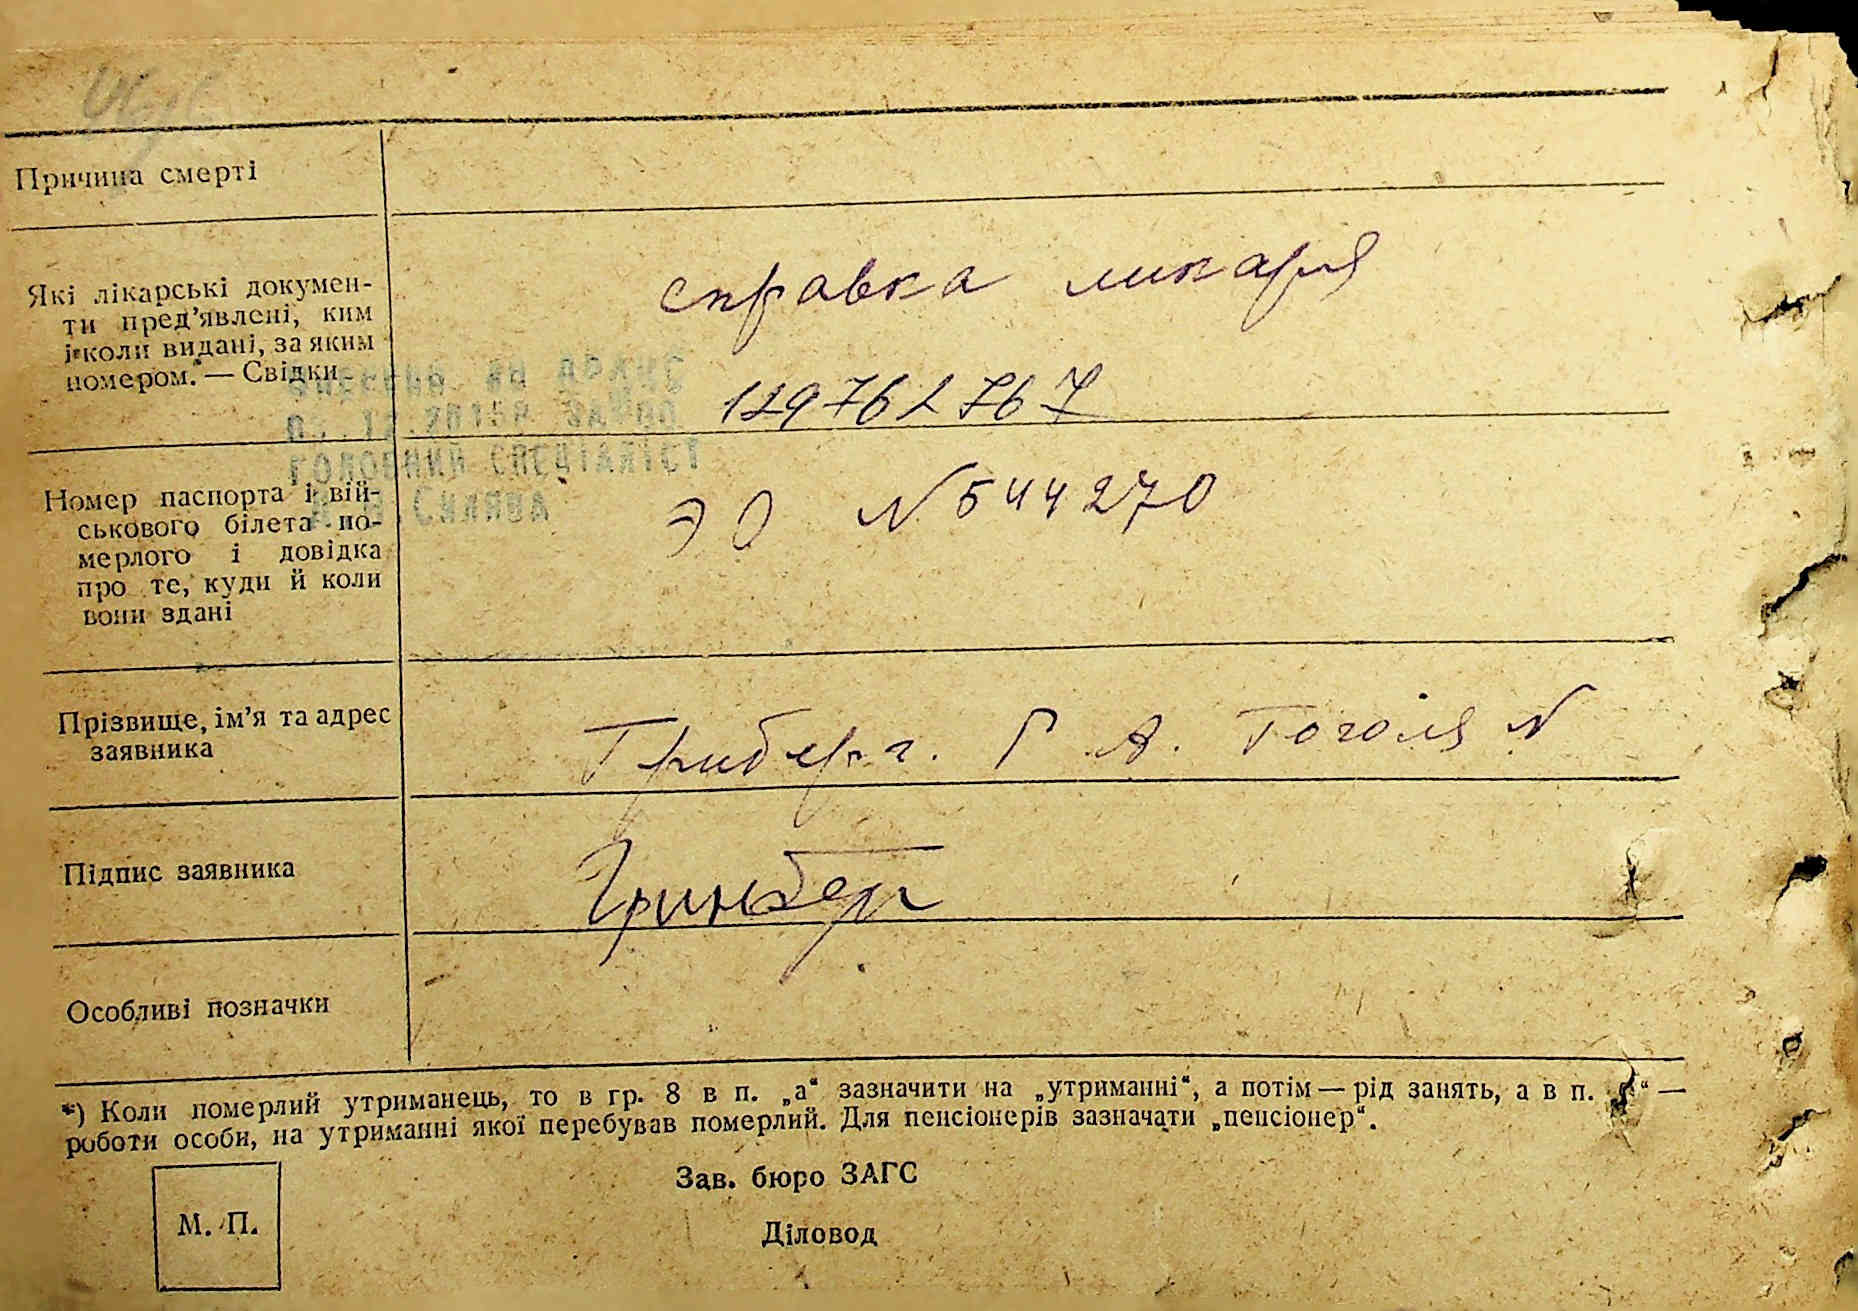 Причина смерті
Які лікарські докумен-
ти пред'явлені, ким
і коли видані, за яким
номером. — Свідки
справка ликаря
129762767
Номер паспорта і вій-
ськового білета по-
мерлого і довідка
про те, куди й коли
вони здані
ЭО N 544270
ГОЛОВНИЙ СПЕЦІАЛІСТ
Прізвище, ім'я та адрес
заявника
Гриберг. Г А. Гоголя N
Підпис заявника
Гринберг
Особливі позначки
*) Коли померлий утриманець, то в гр. 8 в п. „а“ зазначити на „утриманні“, а потім — рід занять, а в п. —
роботи особи, на утриманні якої перебував померлий. Для пенсіонерів зазначати „пенсіонер“.
Зав. бюро ЗАГС
М. П.
Діловод